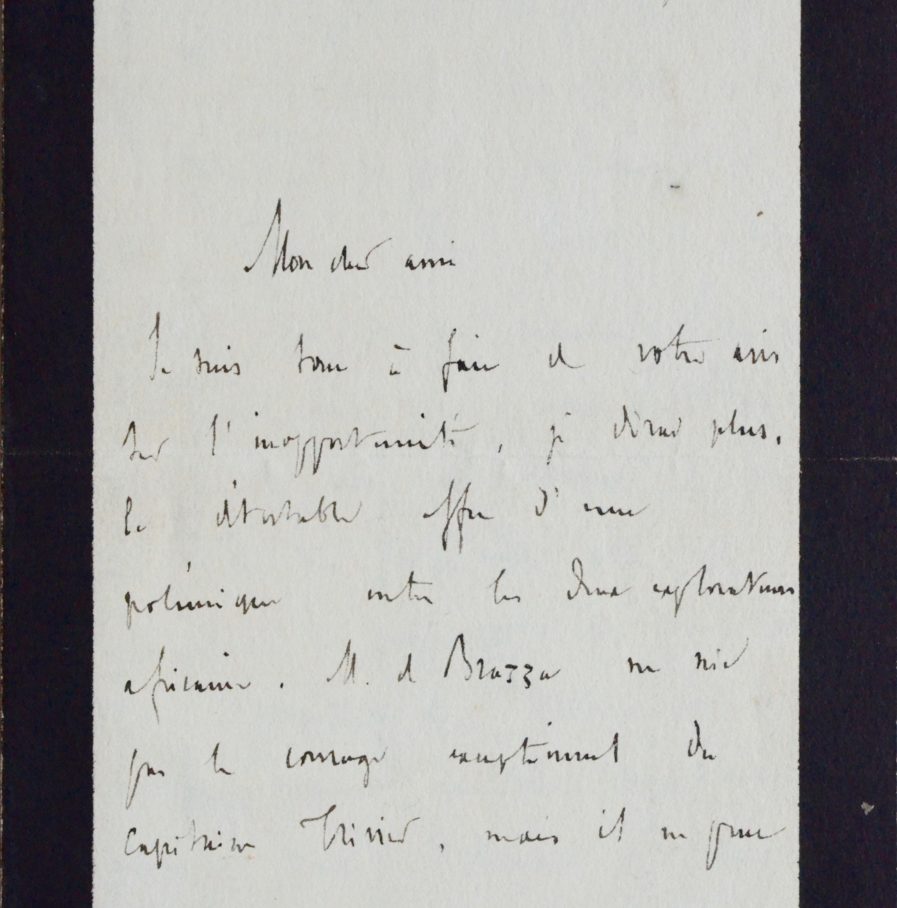 Mon cher ami
Je suis tout à fait de votre avis
sur l'inopportunité, je dirai plus,
le détestable effet d'une
polémique entre les deux explorateurs
africains. M. de Brazza ne nie
pas le courage exceptionnel du
capitaine Trivier, mais il ne peut